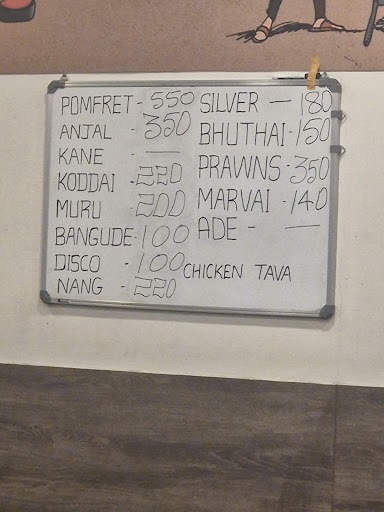 POMFRET - 550
ANJAL - 350
KANE - —
KODDAI - 220
MURU - 200
BANGUDE - 100
DISCO - 100
NANG - 220
SILVER — 180
BHUTHAI - 150
PRAWNS - 350
MARVAI - 140
ADE - —
CHICKEN TAVA